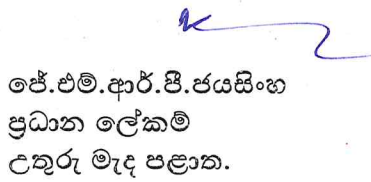 ජේ.එම්.ආර්.පී.ජයසිංහ
ප්‍රධාන ලේකම්
උතුරු මැද පළාත.